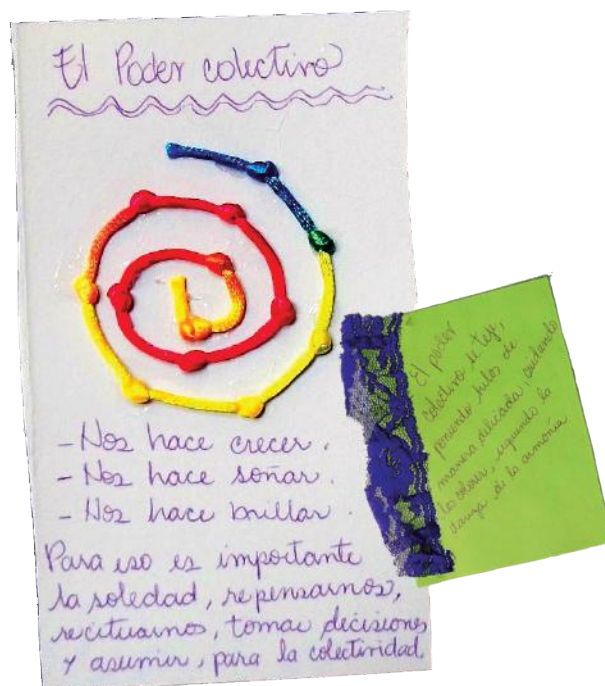 El Poder colectivo
- Nos hace crecer.
- Nos hace soñar.
- Nos hace brillar.
Para eso es importante
la soledad, repensarnos,
recituarnos, tomar decisiones
y asumir, para la colectividad
El poder
colectivo se teje,
poniendo hilos de
manera delicada, cuidando
los colores, siguiendo la
danza de la armonía